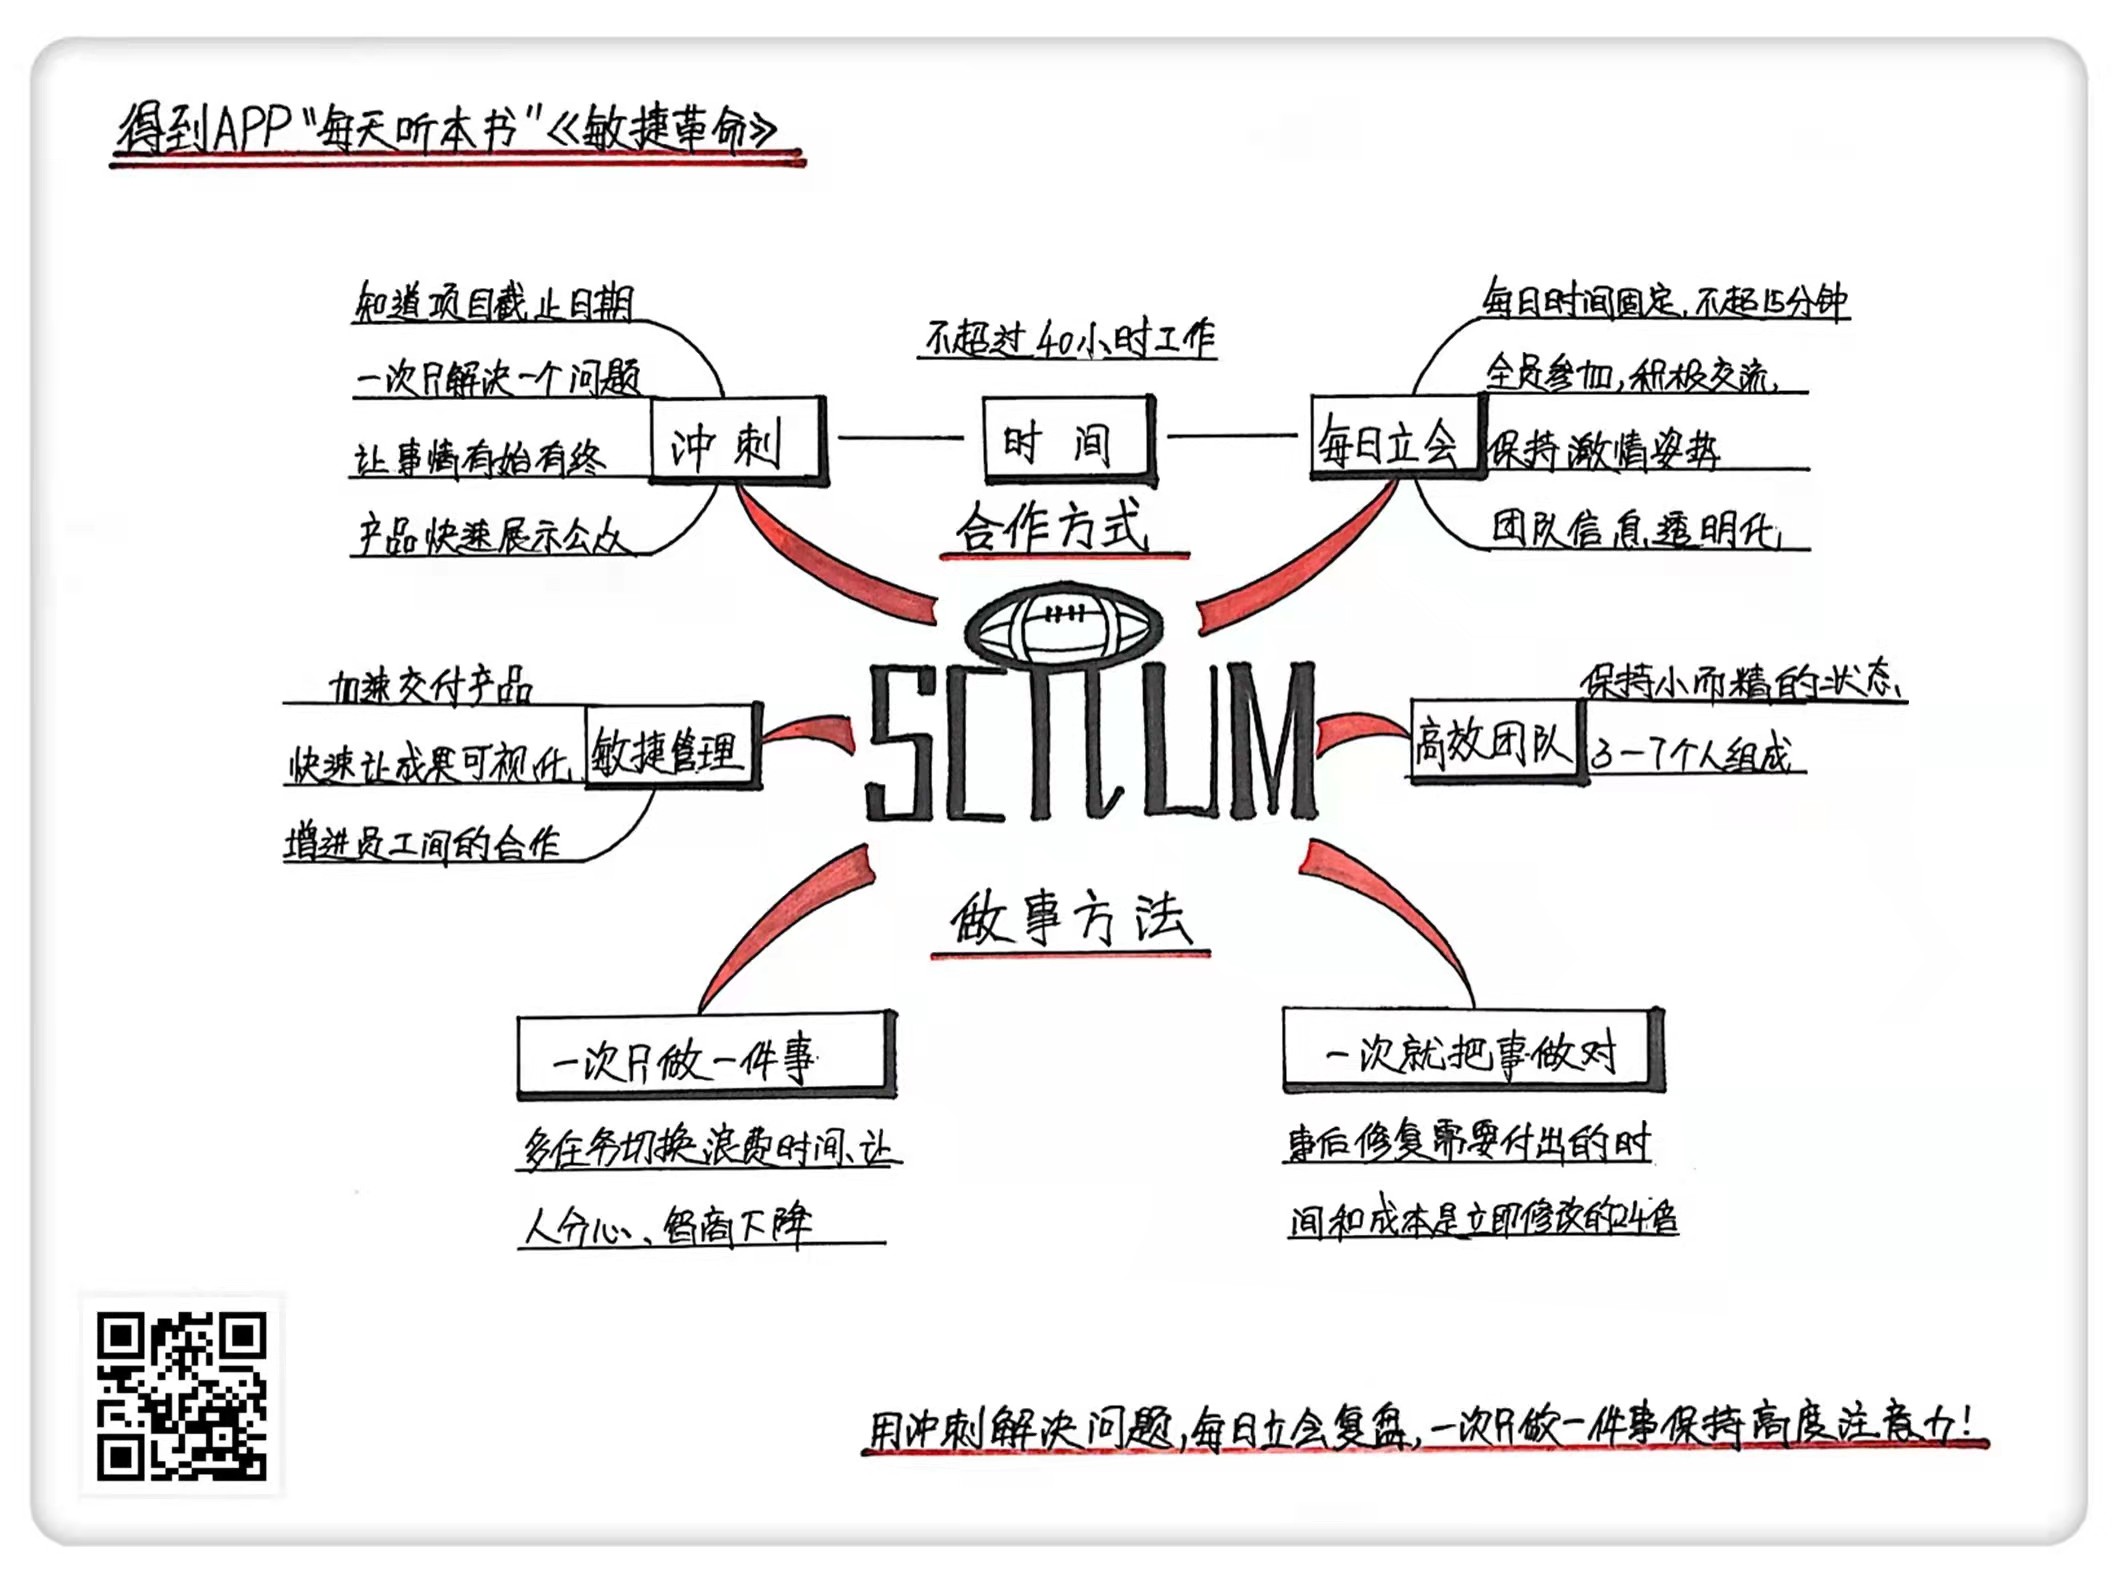 得到APP“每天听本书”《敏捷革命》
知道项目截止日期
一次只解决一个问题
让事情有始有终
产品快速展示公众
冲刺
不超过40小时工作
时间
合作方式
每日时间固定,不超15分钟
全员参加,积极交流,
保持激情姿势
团队信息透明化,
每日立会
加速交付产品
快速让成果可视化,
增进员工间的合作
敏捷管理
SCRUM
保持小而精的状态,
3-7个人组成
高效团队
做事方法
一次只做一件事
多任务切换浪费时间、让
人分心、智商下降
一次就把事做对
事后修复需要付出的时
间和成本是立即修改的24倍
用冲刺解决问题,每日立会复盘,一次只做一件事保持高度注意力!